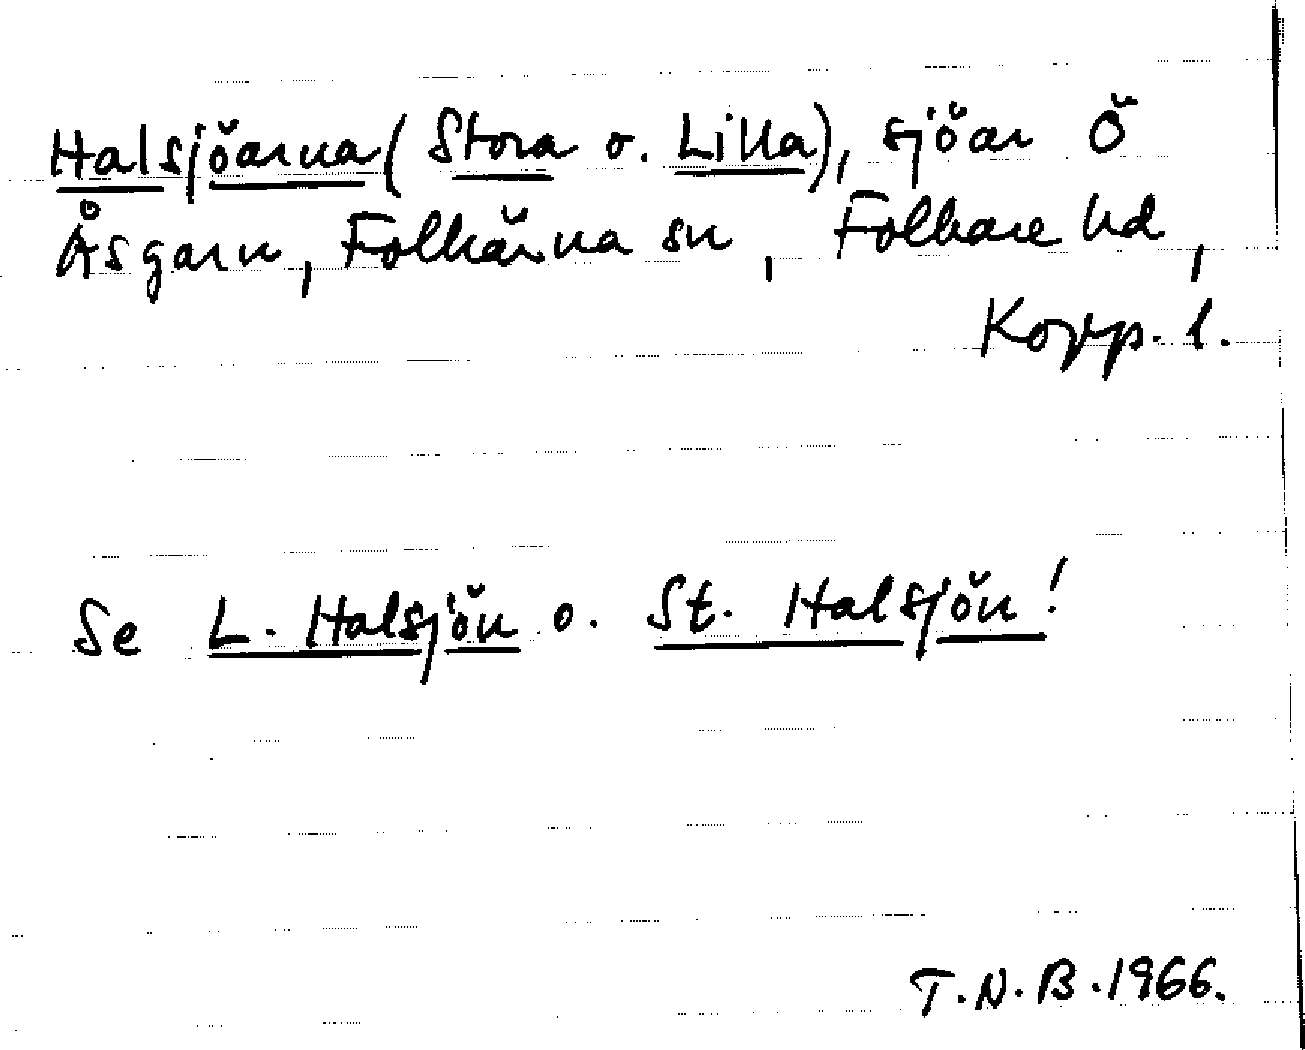 Halsjöarna (Stora o. Lilla), sjöar Ö
Åsgarn, Folkärna sn, Folkare hd,
Kopp. l.
Se L. Halsjön o. St. Halsjön!
T.N.B. 1966.